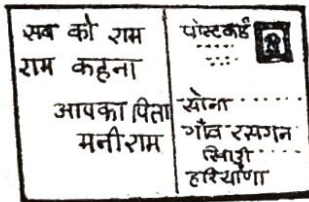 सब को राम
राम कहना
आपका पिता
मनीराम
पोस्टकार्ड
सोना
गाँव रसगन
हरियाणा